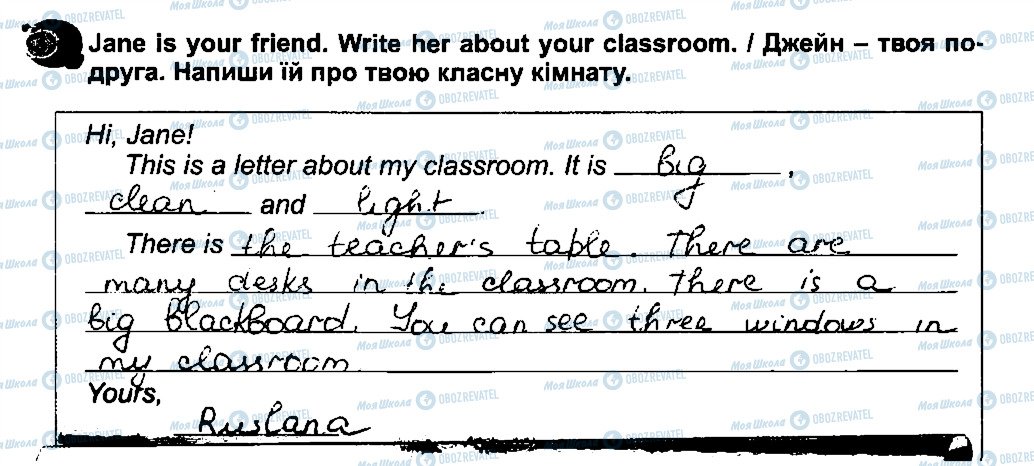 Jane is your friend. Write her about your classroom. / Джейн – твоя по-
друга. Напиши їй про твою класну кімнату.
Hi, Jane!
This is a letter about my classroom. It is big,
clean and light.
There is the teacher's table. There are
many desks in the classroom. There is a
big blackboard. You can see three windows in
my classroom.
Yours,
Ruslana